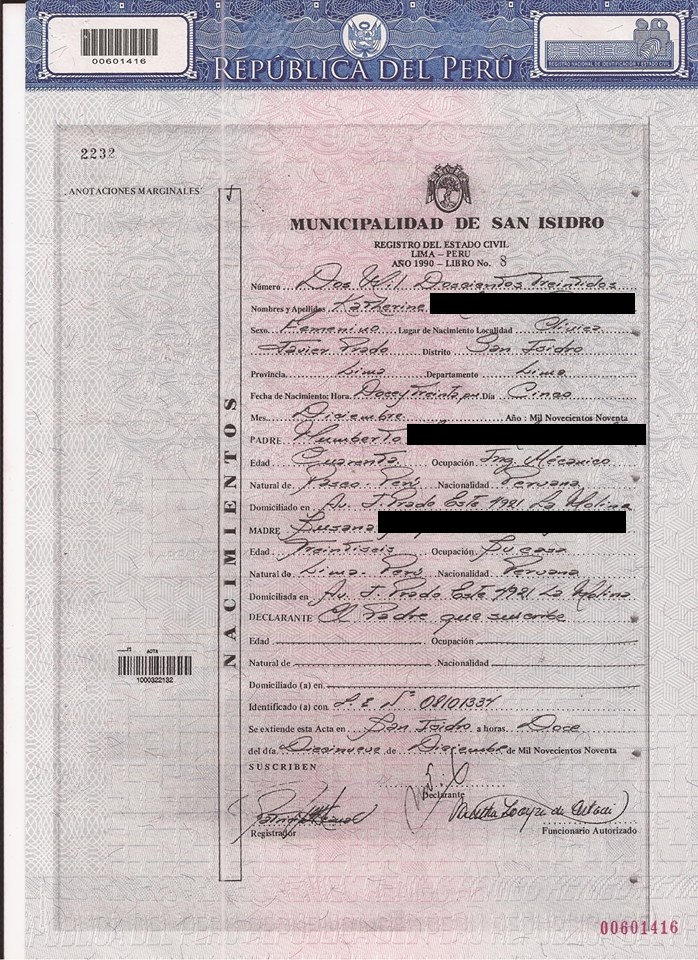 00601416
REPÚBLICA DEL PERÚ
RENIEC
REGISTRO NACIONAL DE IDENTIFICACIÓN Y ESTADO CIVIL
2232
ANOTACIONES MARGINALES
NACIMIENTOS
MUNICIPALIDAD DE SAN ISIDRO
REGISTRO DEL ESTADO CIVIL
LIMA – PERU
AÑO 1990 – LIBRO No. 8
Número Dos Mil Doscientos Treintidos
Nombres y Apellidos Katherine
Sexo Femenino Lugar de Nacimiento Localidad Clínica
Javier Prado Distrito San Isidro
Provincia Lima Departamento Lima
Fecha de Nacimiento: Hora. Doce y treinta pm Día Cinco
Mes. Diciembre Año : Mil Novecientos Noventa
PADRE Humberto
Edad Cuarenta Ocupación Ing. Mecánico
Natural de Pasco Perú Nacionalidad Peruana
Domiciliado en Av. J. Prado Este 4921 La Molina
MADRE Susana
Edad Treintiseis Ocupación Su casa
Natural de Lima Perú Nacionalidad Peruana
Domiciliada en Av. J. Prado Este 4921 La Molina
DECLARANTE El Padre que suscribe
Edad Ocupación
Natural de Nacionalidad
Domiciliado (a) en
Identificado (a) con L.E Nº 08101334
Se extiende esta Acta en San Isidro a horas Doce
del día Diecinueve de Diciembre de Mil Novecientos Noventa
SUSCRIBEN
Declarante
Registrador
Funcionario Autorizado
ACTA
1000322132
00601416